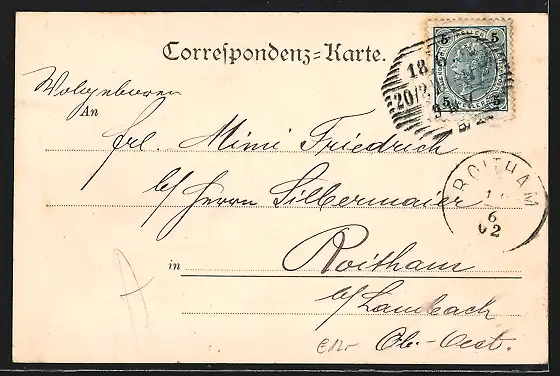 Correspondenz=Karte.
5 5
5 5
18.6
20/2
Wohlgeboren
An
Frl. Mimi Friedrich
b/ Herrn Silbermaier
ROITHAM
6
02
in Roitham
b/ Lambach
Ob.-Oest.